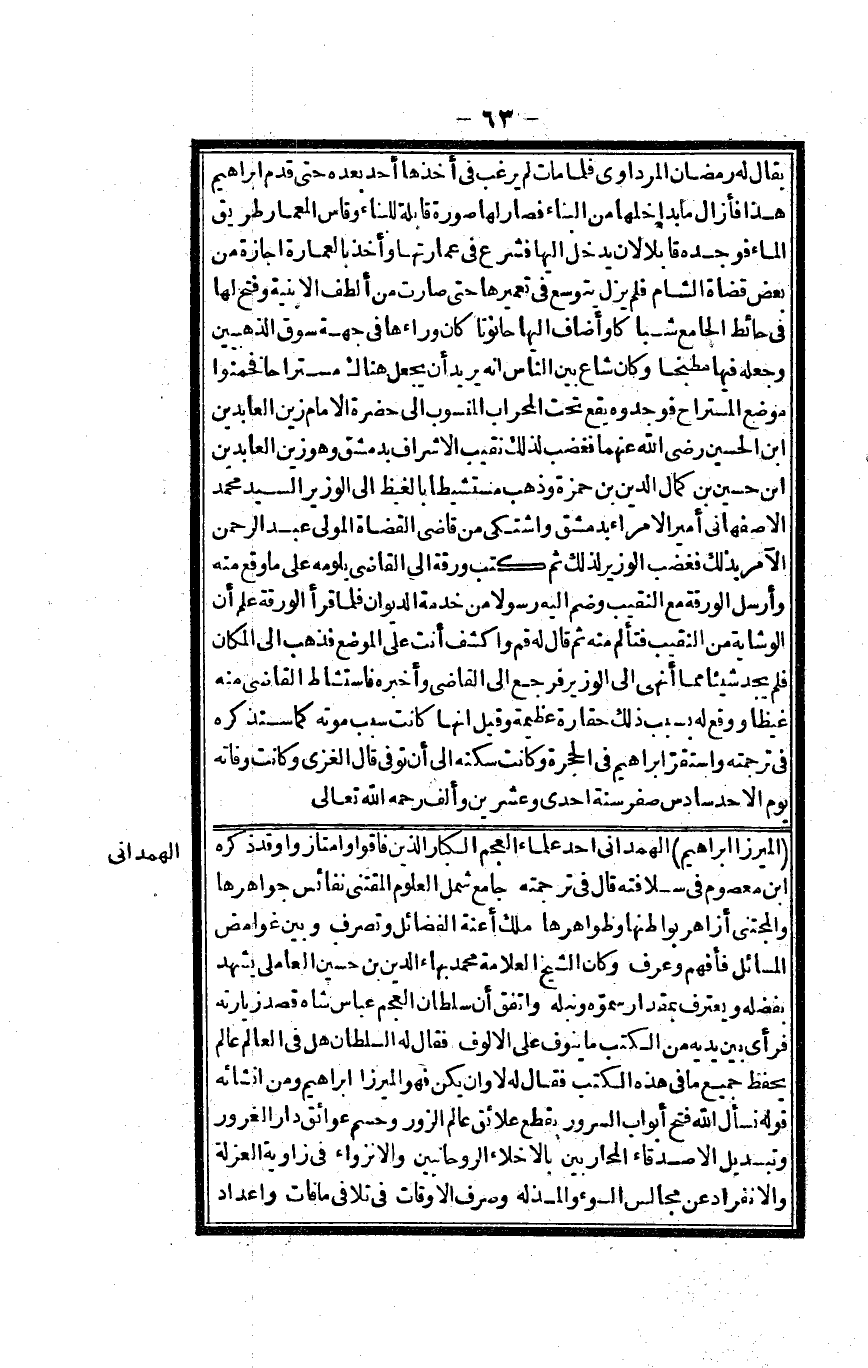 - ٦٣ -
يقال له رمضان المرداوى فلما مات لم يرغب فى أخذها أحد بعده حتى قدم ابراهيم
هذا فأزال ما بداخلها من البناء فصار لها صورة قابلة للبناء وقاس المعمار طريق
الماء فوجده قابلا لان يدخل اليها فشرع فى عمارتها وأخذ بالعمارة اجازة من
بعض قضاة الشام فلم يزل يتوسع فى تعميرها حتى صارت من ألطف الابنية وفتح لها
فى حائط الجامع شباكا وأضاف اليها حانوتا كان وراءها فى جهة سوق الذهبيين
وجعله فيها مطبخا وكان شاع بين الناس انه يريد أن يجعل هناك مستراحا فخمنوا
موضع المستراح فوجدوه يقع تحت المحراب المنسوب الى حضرة الامام زين العابدين
ابن الحسين رضى الله عنهما فغضب لذلك نقيب الاشراف بدمشق وهو زين العابدين
ابن حسين بن كمال الدين بن حمزة وذهب مستشيطا بالغيظ الى الوزير السيد محمد
الاصفهانى أمير الامراء بدمشق واشتكى من قاضى القضاة المولى عبد الرحمن
الآمر بذلك فغضب الوزير لذلك ثم كتب ورقة الى القاضى يلومه على ما وقع منه
وأرسل الورقة مع النقيب وضم اليه رسولا من خدمة الديوان فلما قرأ الورقة علم أن
الوشاية من النقيب فتألم منه ثم قال له قم واكشف أنت على الموضع فذهب الى المكان
فلم يجد شيئا مما أنهى الى الوزير فرجع الى القاضى وأخبره فاستشاط القاضى منه
غيظا ووقع له بسبب ذلك حقارة عظيمة وقيل انها كانت سبب موته كما ستذكره
فى ترجمته واستقر ابراهيم فى الحجرة وكانت سكنه الى أن توفى قال الغزى وكانت وفاته
يوم الاحد سادس صفر سنة احدى وعشرين وألف رحمه الله تعالى
الهمدانى
(الميرزا ابراهيم) الهمدانى احد علماء العجم الكبار الذين فاقوا وامتازوا وقد ذكره
ابن معصوم فى سلافته قال فى ترجمته جامع شمل العلوم المقتنى نفائس جواهرها
والمجتنى أزاهر بواطنها وظواهرها ملك أعنة الفضائل وتصرف وبين غوامض
المسائل فأفهم وعرف وكان الشيخ العلامة محمد بهاء الدين بن حسين العاملى يشهد
بفضله ويعترف بمقدار سموّه ونبله واتفق أن سلطان العجم عباس شاه قصد زيارته
فرأى بين يديه من الكتب ما ينوف على الالوف فقال له السلطان هل فى العالم عالم
يحفظ جميع ما فى هذه الكتب فقال له لا وان يكن فهو الميرزا ابراهيم ومن انشائه
قوله نسأل الله فتح أبواب السرور بقطع علائق عالم الزور وحسم عوائق دار الغرور
وتبديل الاصدقاء المجازيين بالاخلاء الروحانيين والانزواء فى زاوية العزلة
والانفراد عن مجالس السوء والمذلة وصرف الاوقات فى تلافى ما فات واعداد